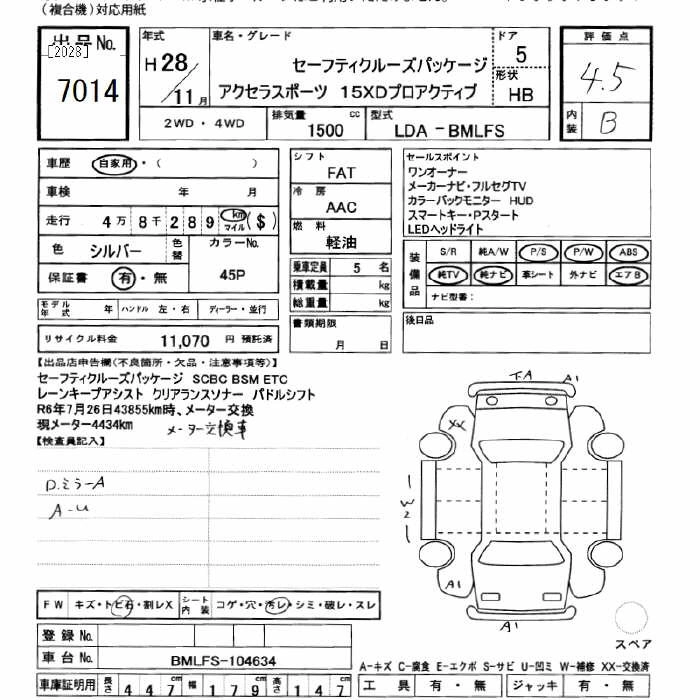 (複合機)対応用紙
出品No.
[2028]
7014
年式
H 28
11 月
車名・グレード
セーフティクルーズパッケージ
アクセラスポーツ 15XDプロアクティブ
ドア
5
形状
HB
2WD・4WD
排気量
1500
cc
型式
LDA -BMLFS
評価点
4.5
内装
B
車歴
自家用・( )
車検 年 月
走行 4万 8千 2 8 9 km マイル ($)
色 シルバー
色替
カラーNo.
保証書 有・無
45P
モデル年式 年
ハンドル 左・右
ディーラー・並行
リサイクル料金 11,070 円 預託済
シフト
FAT
冷房
AAC
燃料
軽油
乗車定員 5 名
積載量 kg
総重量 kg
書類期限
月 日
セールスポイント
ワンオーナー
メーカーナビ・フルセグTV
カラーバックモニター HUD
スマートキー・Pスタート
LEDヘッドライト
装備品
S/R 純A/W P/S P/W ABS
純TV 純ナビ 革シート 外ナビ エアB
ナビ型番:
後日品
【出品店申告欄(不良箇所・欠品・注意事項等)】
セーフティクルーズパッケージ SCBC BSM ETC
レーンキープアシスト クリアランスソナー パドルシフト
R6年7月26日43855km時、メーター交換
現メーター4434km
メーター交換車
【検査員記入】
D.ミラーA
A-U
FA
A1
XX
W2
A1
A1
スペア
FW キズ・トビ石・割レX
シート内装 コゲ・穴・汚レ・シミ・破レ・スレ
登録No.
車台No. BMLFS-104634
車庫証明用 長さ 447cm 幅 179cm 高さ 147cm
A-キズ C-腐食 E-エクボ S-サビ U-凹ミ W-補修 XX-交換済
工具 有・無 ジャッキ 有・無